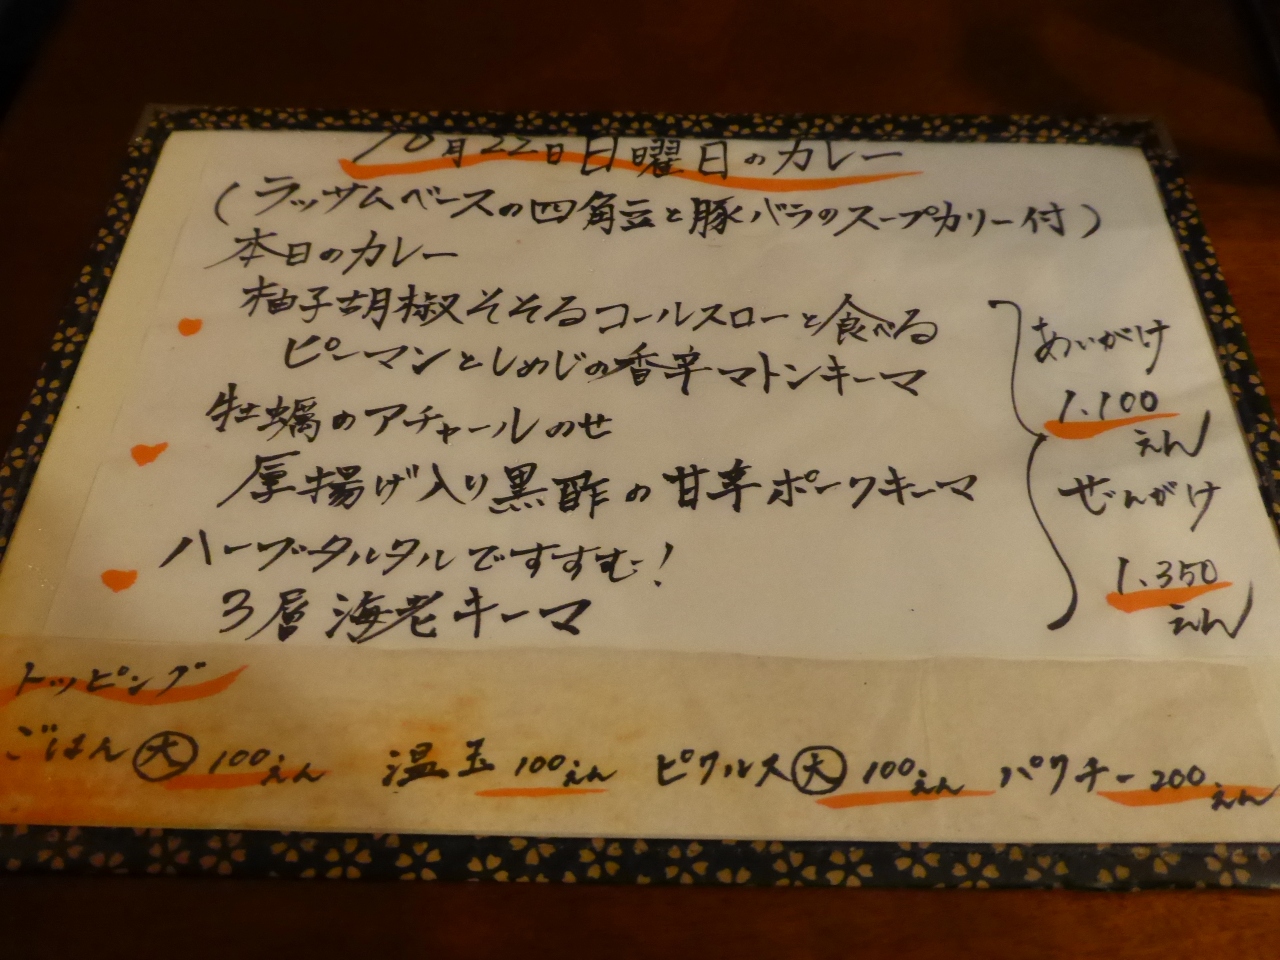 10月22日日曜日のカレー
(ラッサムベースの四角豆と豚バラのスープカリー付)
本日のカレー
柚子胡椒そそるコールスローと食べる
ピーマンとしめじの香辛マトンキーマ
牡蠣のアチャールのせ
厚揚げ入り黒酢の甘辛ポークキーマ
ハーブタルタルですすむ!
3層海老キーマ
あいがけ
1.100
えん
ぜんがけ
1.350
えん
トッピング
ごはん大100えん 温玉100えん ピクルス大100えん パクチー200えん